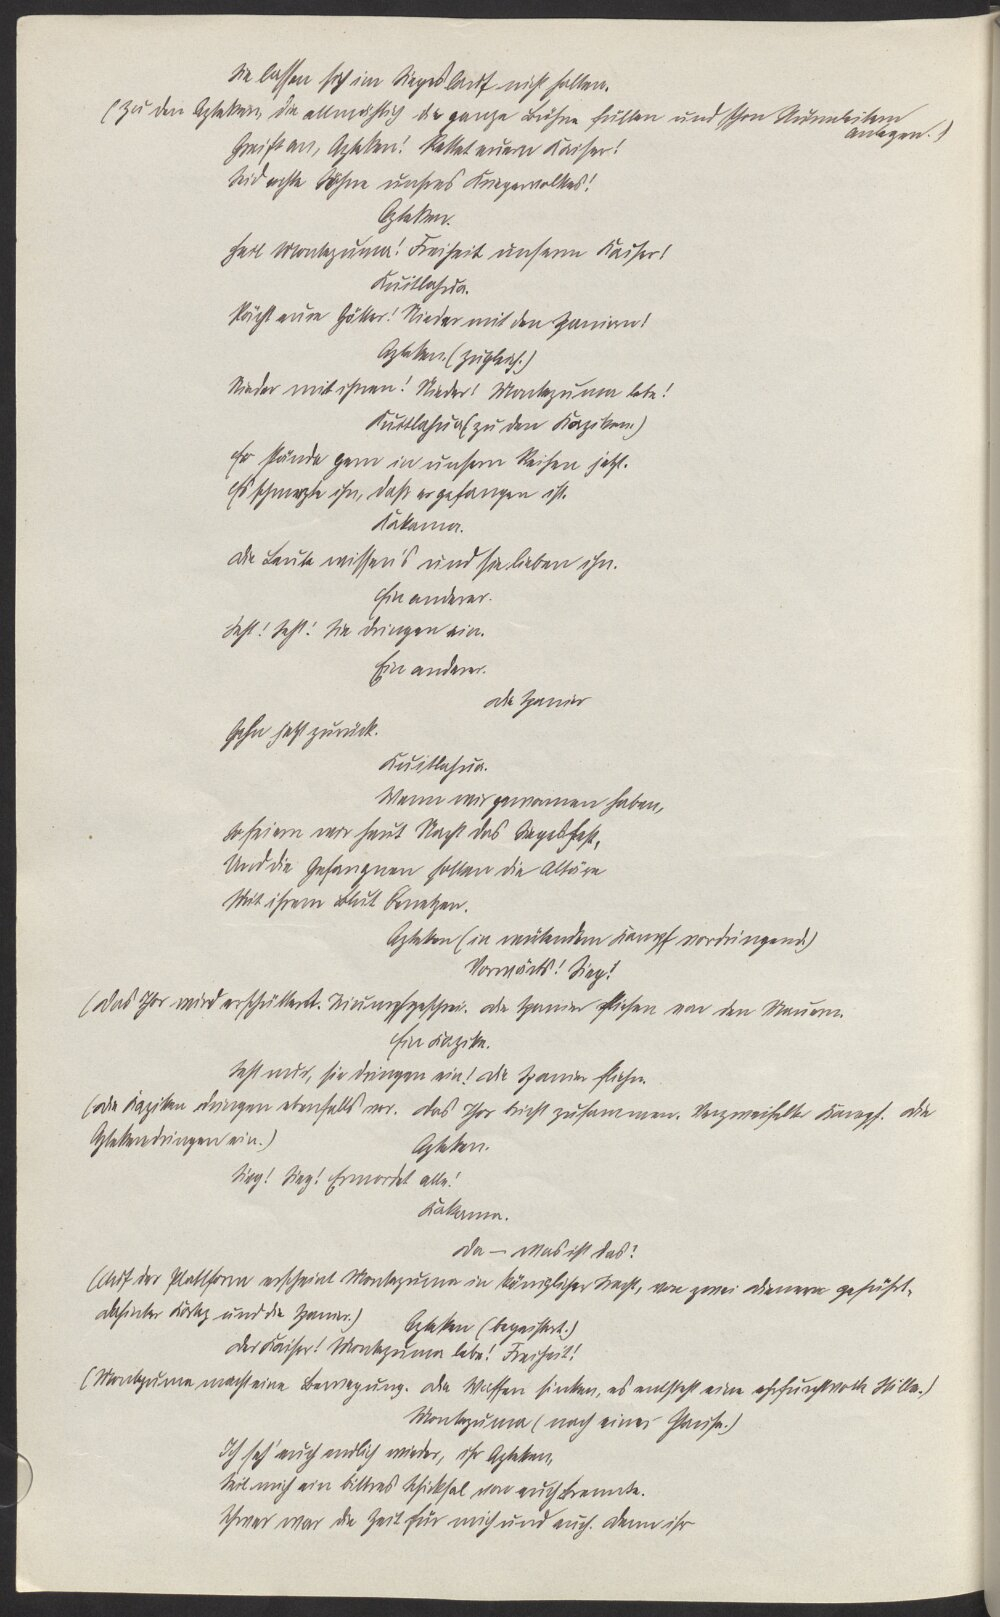 Sie lassen sich im Siegeslauf nicht halten.
(Zu den Azteken, die allmählich die ganze Bühne füllen und schon Sturmleitern
anlegen.)
Greift an, Azteken! Rettet euern Kaiser!
Seid echte Söhne unsres Kriegervolkes!
Azteken.
Heil Montezuma! Freiheit unserm Kaiser!
Kuitlahua.
Rächt eure Götter! Nieder mit den Spaniern!
Azteken. (zugleich.)
Nieder mit ihnen! Nieder! Montezuma lebe!
Kuitlahua (zu den Kaziken.)
Er stände gern in unsern Reihen jetzt.
Es schmerzte ihn, daß er gefangen ist.
Kakama.
Die Leute wissen's und sie lieben ihn.
Ein anderer.
Seht! Seht! Sie dringen ein.
Ein anderer.
Die Spanier
Gehn jetzt zurück.
Kuitlahua.
Wenn wir gewonnen haben,
So feiern wir heut Nacht das Siegesfest,
Und die Gefangnen sollen die Altäre
Mit ihrem Blut benetzen.
Azteken (in wütendem Kampf vordringend.)
Vorwärts! Sieg!
(Das Thor wird erschüttert. Triumphgeschrei. Die Spanier fliehen von den Mauern.
Ein Kazike.
Seht nur, sie dringen ein! Die Spanier fliehn.
(Die Kaziken dringen ebenfalls vor. Das Thor bricht zusammen. Verzweifelter Kampf. Die
Azteken dringen ein.)
Azteken.
Sieg! Sieg! Ermordet alle!
Kakama.
Da – was ist das?
(Auf der Plattform erscheint Montezuma in königlicher Tracht, von zwei Dienern geführt,
dahinter Kortez und die Spanier.)
Azteken (begeistert.)
Der Kaiser! Montezuma lebe! Freiheit!
(Montezuma macht eine Bewegung. Die Waffen sinken, es entsteht eine ehrfurchtvolle Stille.)
Montezuma (nach einer Pause.)
Ich seh' euch endlich wieder, ihr Azteken,
Seit mich ein bittres Schicksal von euch trennte.
Schwer war die Zeit für mich und euch. Denn ihr